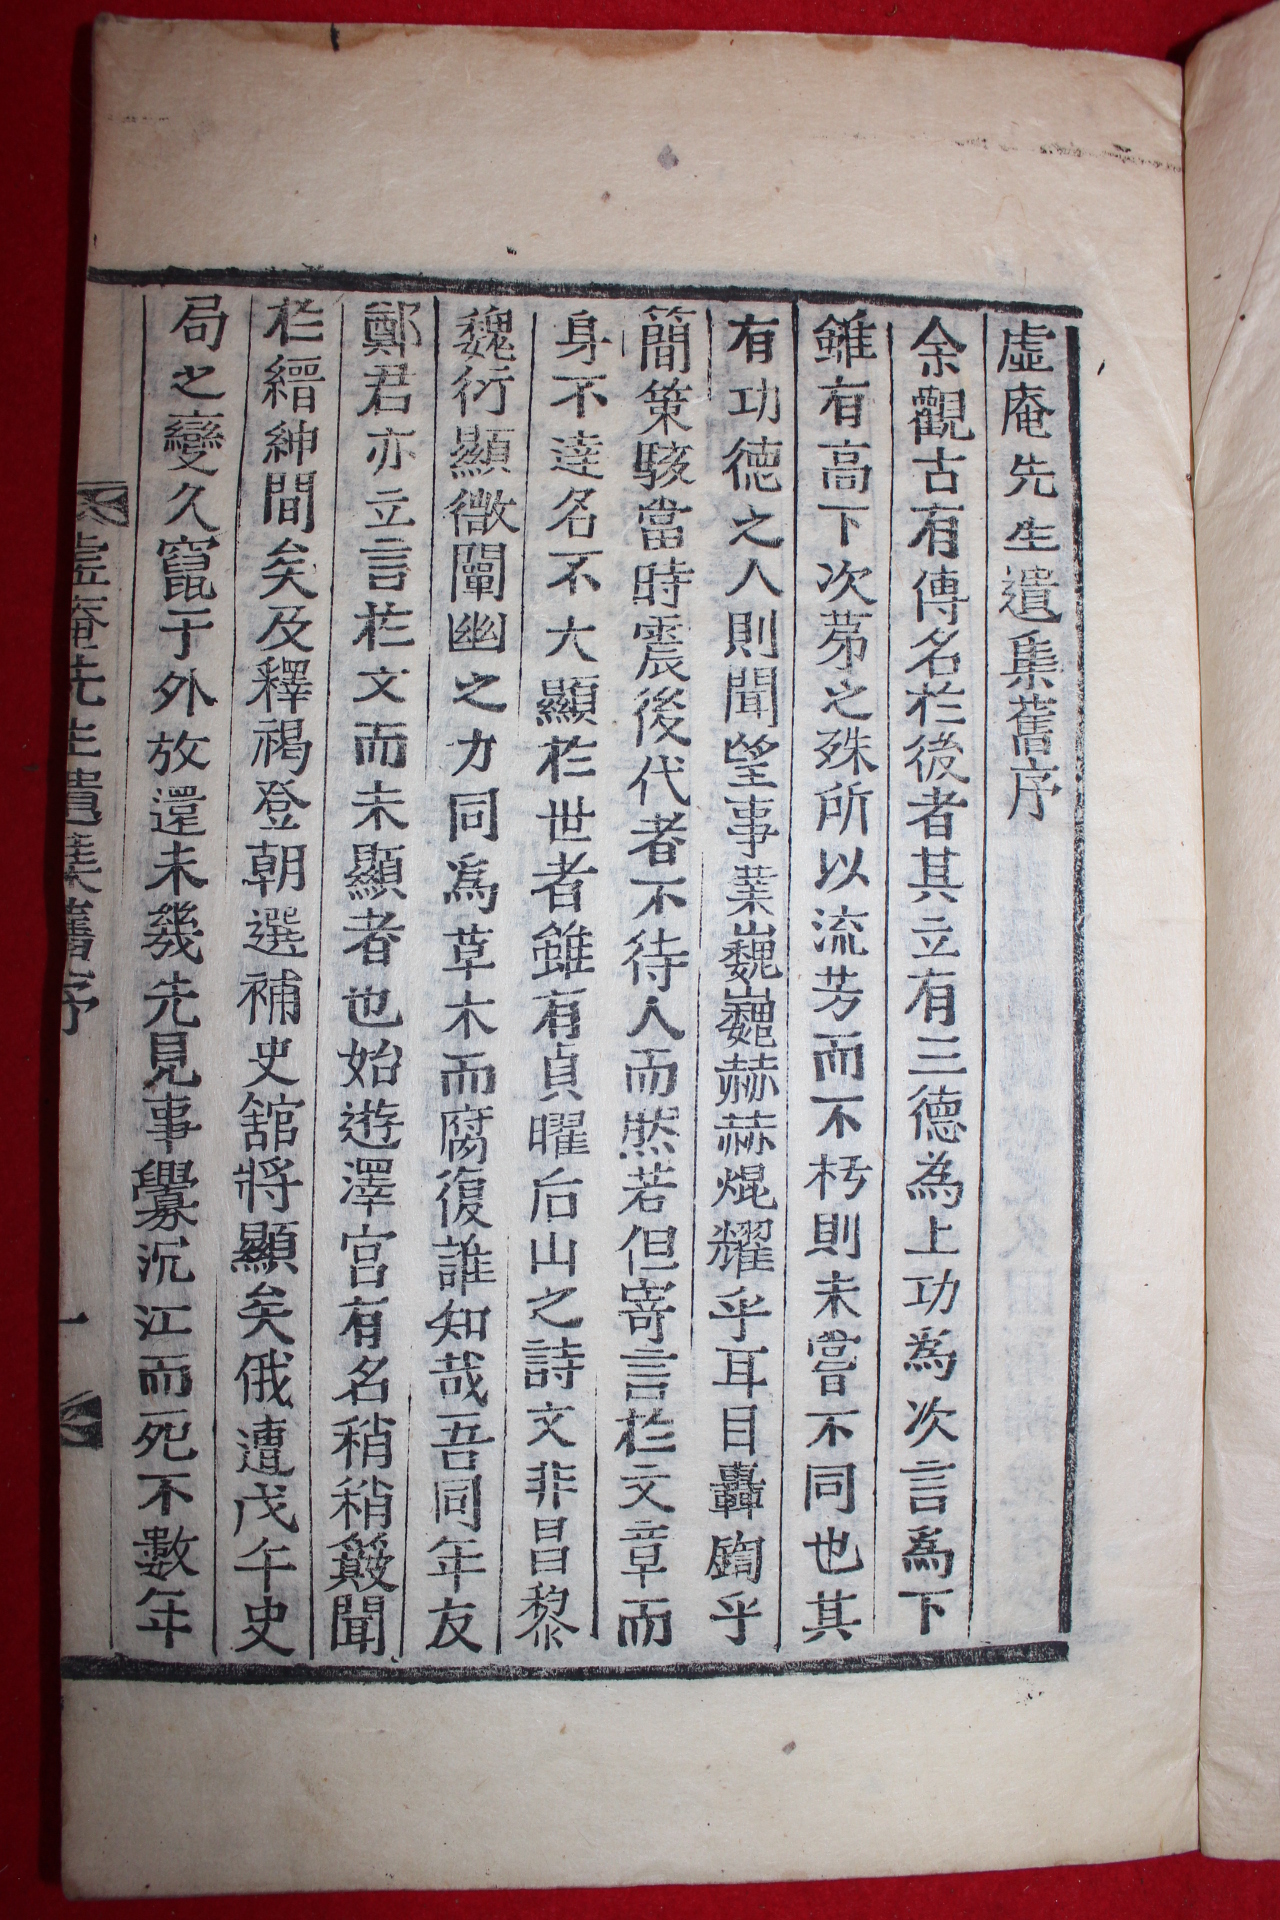 虛庵先生遺集舊序
余觀古有傳名於後者其立有三德為上功為次言為下
雖有高下次苐之殊所以流芳而不朽則未嘗不同也其
有功德之人則聞望事業巍巍赫赫焜耀乎耳目轟鞫乎
簡策駭當時震後代者不待人而然若但寄言於文章而
身不達名不大顯於世者雖有貞曜后山之詩文非昌黎
魏衍顯微闡幽之力同爲草木而腐復誰知哉吾同年友
鄭君亦立言於文而未顯者也始遊澤宮有名稍稍籔聞
於縉紳間矣及釋褐登朝選補史舘將顯矣俄遭戊午史
局之變久竄于外放還未幾先見事釁沉江而死不數年
虛庵先生遺集舊序 一